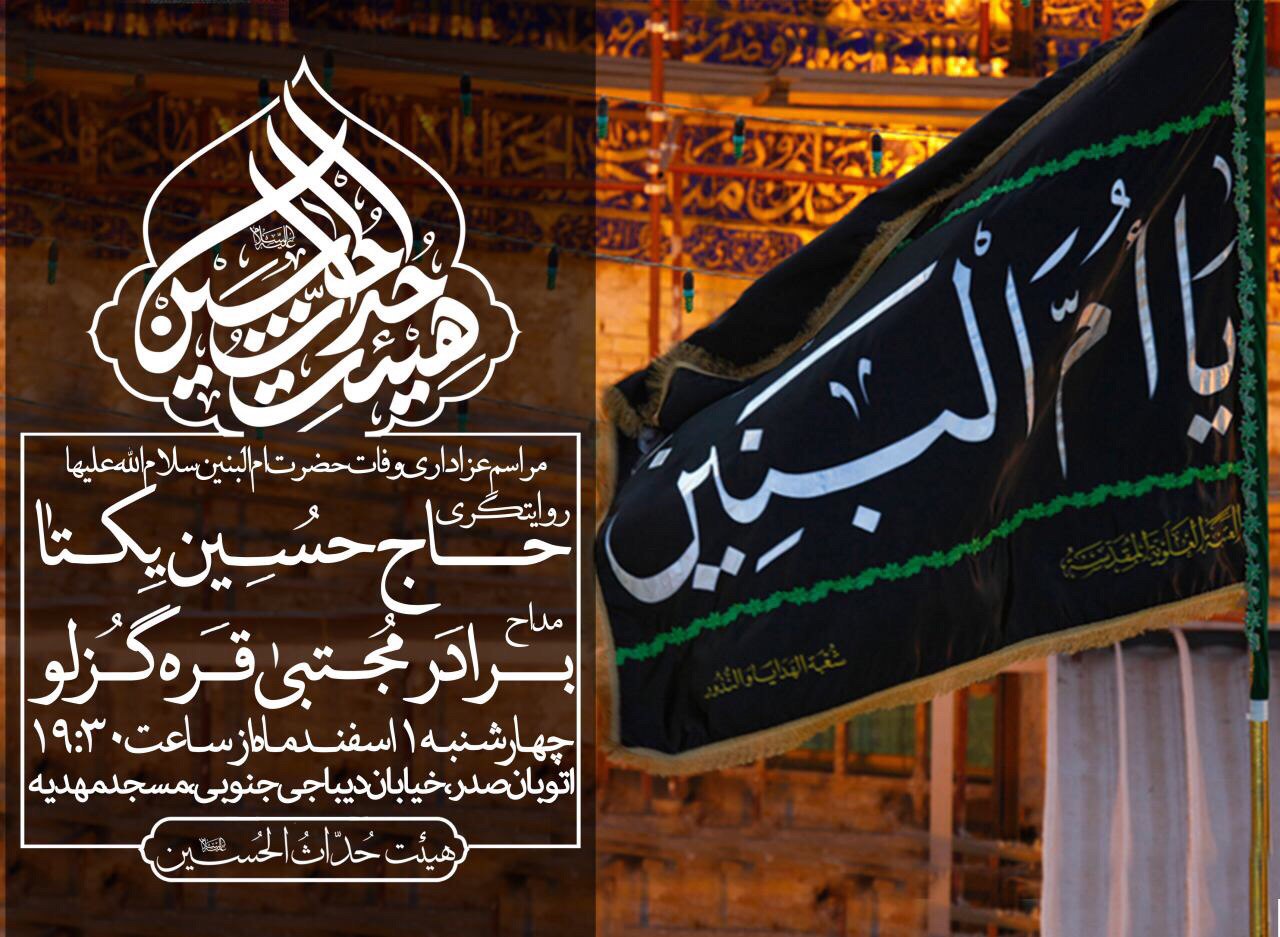 هیئت حُدّاثُ الحُسین علیه‌السلام
مراسم عزاداری وفات حضرت ام البنین سلام الله علیها
روایتگری
حاج حُسِین یِکتا
مداح
برادَر مُجتبیٰ قَره گُزلو
چهارشنبه ۱ اسفندماه از ساعت ۱۹:۳۰
اتوبان صدر، خیابان دیباجی جنوبی، مسجد مهدیه
هیئت حُدّاثُ الحُسین
یَا أُمَّ الْبَنِین
شعبة الهدايا والنذور